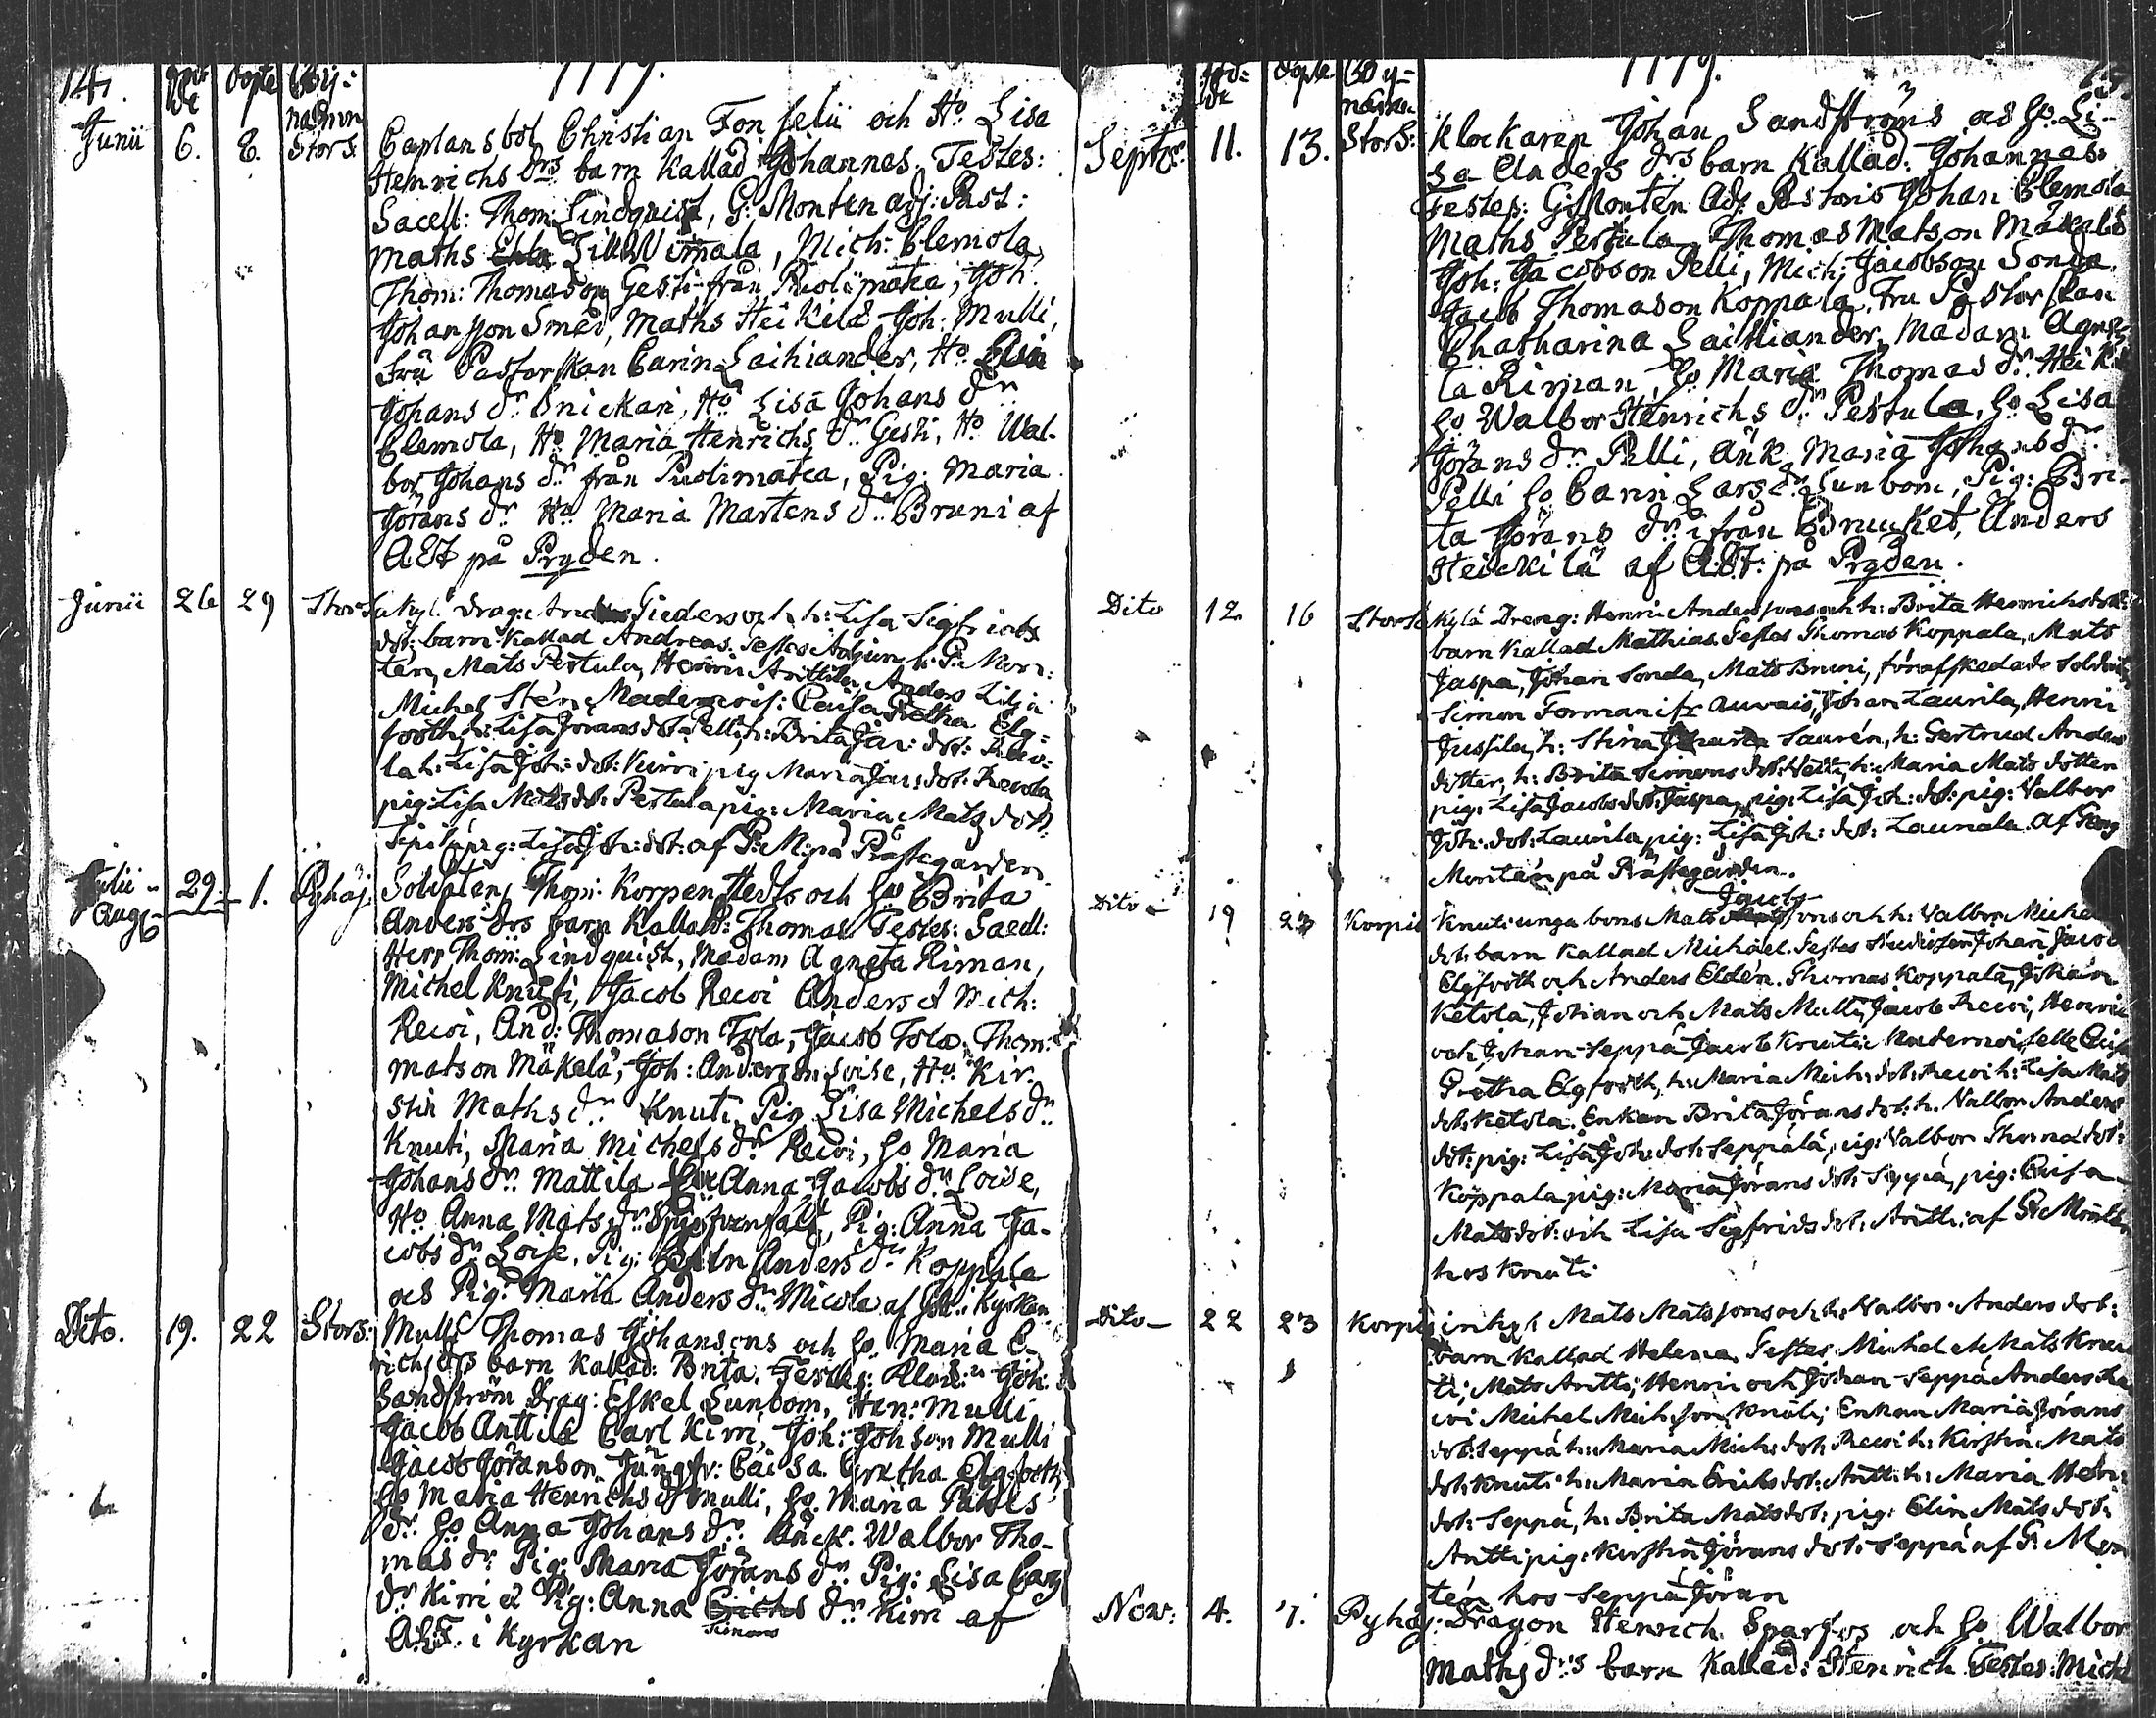 14. 1779.
döpte By:
namn
Junii 6. 8. StorS. Caplansbol Christian Fonselii och Ho Lisa
Henrichs drs barn Kallad Johannes. Testes:
Sacell: Thom: Lindquist, G: Monten adj: Past:
Maths Wimala, Mich: Clemola,
Thom: Thomason Gesti från Puolimatca, Joh:
Johansson Smed, Maths Heikilä Joh: Mulli,
Fru Pastorskan Carin Laihiander, Ho
Johans dr Snickari, Ho Lisa Johans dr
Clemola, Ho Maria Henrichs dr Gesti, Ho Wal-
bor Johans dr från Puolimatca, Pig: Maria
Jörans dr Ho Maria Martens dr Bruni af
på Pryden.
Junii 26 29 Stors kyl: drag: Gieders och h: Lisa Sigfrids
dot: barn Kallad Andreas. Testes Adjunct: G: Mon-
ten, Mats Pertula, Henric Anttila, Anders Lilja
Michel Stén, Mademois: Caisa Gretha Elg=
footh, h: Lisa Jörans dot: Pelli, h: Brita Joh: dot:
la h: Lisa Joh: dot: Kirri pig Maria dot:
pig: Lisa Mats dot: Pertula pig: Maria Mats dot:
pig: Lisa Joh: dot: af G: M: på Prästegården.
Julii - Aug: 29: - 1. Pyhäj: Soldaten Thom: Korpenstedts och Ho Brita
Anders drs barn Kallad: Thomas Testes: Sacell:
Herr Thom: Lindquist, Madam Agneta Riman,
Michel Knuti, Jacob Recoi Anders & Mich:
Recoi, And: Thomason Tola, Jacob Tola, Thom:
Matson Mäkelä, Joh: Anderson Loise, Ho Kir-
stin Maths dr Knuti, Pig Lisa Michels dr
Knuti, Maria Michels dr Recoi, Ho Maria
Johans dr Mattila Anna Jacobs dr Loise,
Ho Anna Mats dr Pig: Anna Ja-
cobs dr Loise, Pig: Anders dr Koppala
och Pig: Maria Anders dr Micola af i Kyrkan
Dito. 19. 22 Stors: Mulli Thomas Johansons och Ho Maria E-
richs drs barn kallad: Brita. Testes: Klock: Joh:
Sandström Drag: Eskel Lunbom, Hen: Mulli
Jacob Anttila Carl Kirri, Joh: Johson Mulli
Jacob Göranson Jungfr: Caisa Gretha Elgfoth,
Ho Maria Henrichs dr Mulli, Ho Maria
dr Ho Anna Johans dr Änck. Walbor Tho-
mas dr Pig: Maria Jörans dr Pig: Lisa Carls
dr Kirri & Pig: Anna Erichs dr Kirri af
Simons
i Kyrkan
döpte By=
namn 1779. 15.
Septbr: 11. 13. StorS: Klockaren Johan Sandströms och Ho Li-
sa Anders drs barn Kallad: Johannes.
Testes: G: Montén Adj: Pastoris Johan Clemola
Maths Pertula Thomas Matson Mäkelä
Joh: Jacobson Pelli, Mich: Jacobson Sonda
Jacob Thomason Koppala, Fru Pastorskan
Chatharina Laihiander, Madam Agne-
ta Riman, Ho Maria Thomas dr Heiki
Ho Walbor Henrichs dr Pertula, Ho Lisa
Görans dr Pelli, Änk. Maria Johans dr
Pelli Ho Carin Lars dr Lunbom, Pig: Bri-
ta Görans dr ifrån Bruuket, Anders
Heickilä af på Pryden.
Dito 12 16 Stors kylä Dreng: Henric Anderssons och h: Brita Henrichs dot:
barn Kallad Mathias. Testes Thomas Koppala, Mats
Jaspa, Johan Sonda, Mats Bruni, förafskedade Soldaten
Simon Forman Johan Laurila, Henric
Jussila, h: Stina Saurén, h: Gertrud Anders
dotter, h: Brita Simons dot: h: Maria Mats dotter
pig: Lisa Jacobs dot: Jaspa, pig: Lisa Joh: dot: pig: Valbor
Joh: dot: Laurila pig: Lisa Joh: dot: Launala af Georg
Montén på Prästegården.
Jacobs
Dito - 19 23 Korpis Knuti unga bons Mats sons och h: Valbor Michels
dot: barn Kallad Michael. Testes Studiosen Johan Jacob
Elgfooth och Anders Eldén. Thomas Koppala, Johan
Ketola, Johan och Mats Mulli, Jacob Recoi, Henric
och Johan Seppä Jacob Knuti Mademoiselle Caisa
Gretha Elgfooth, h: Maria Mich: dot: Recoi h: Lisa Mats
dot: Ketola, Enkan Brita Jörans dot: h. Valbor Anders
dot: pig: Lisa Joh: dot: Seppälä, pig: Valbor Thomas dot:
Koppala pig: Maria Jörans dot: Seppä, pig: Caisa
Mats dot: och Lisa Segfrids dot: Antti: af G: Monten
hos Knuti
Dito - 22 23 Korpis Mats Matssons och h: Valbor Anders dot:
barn Kallad Helena. Testes Michel och Mats Knu-
ti; Mats Antti; Henric och Johan Seppä Anders Re-
coi Michel Mich: son Knuti; Enkan Maria Jörans
dot: Seppä h: Maria Mich: dot: Recoi h: Kirstin Mats
dot: Knuti h: Maria Erichs dot: Antti h: Maria Hen:
dot: Seppä, h: Brita Mats dot: pig: Elin Mats dot:
Antti pig: Kirstin Jörans dot: Seppä af G: Mon
tén hos Seppä Jöran
Nov: 4. 7. Pyhäj: Dragon Henrich Sparfvs och Ho Walbor
Maths dr's barn Kallad: Henrich Testes: Mich